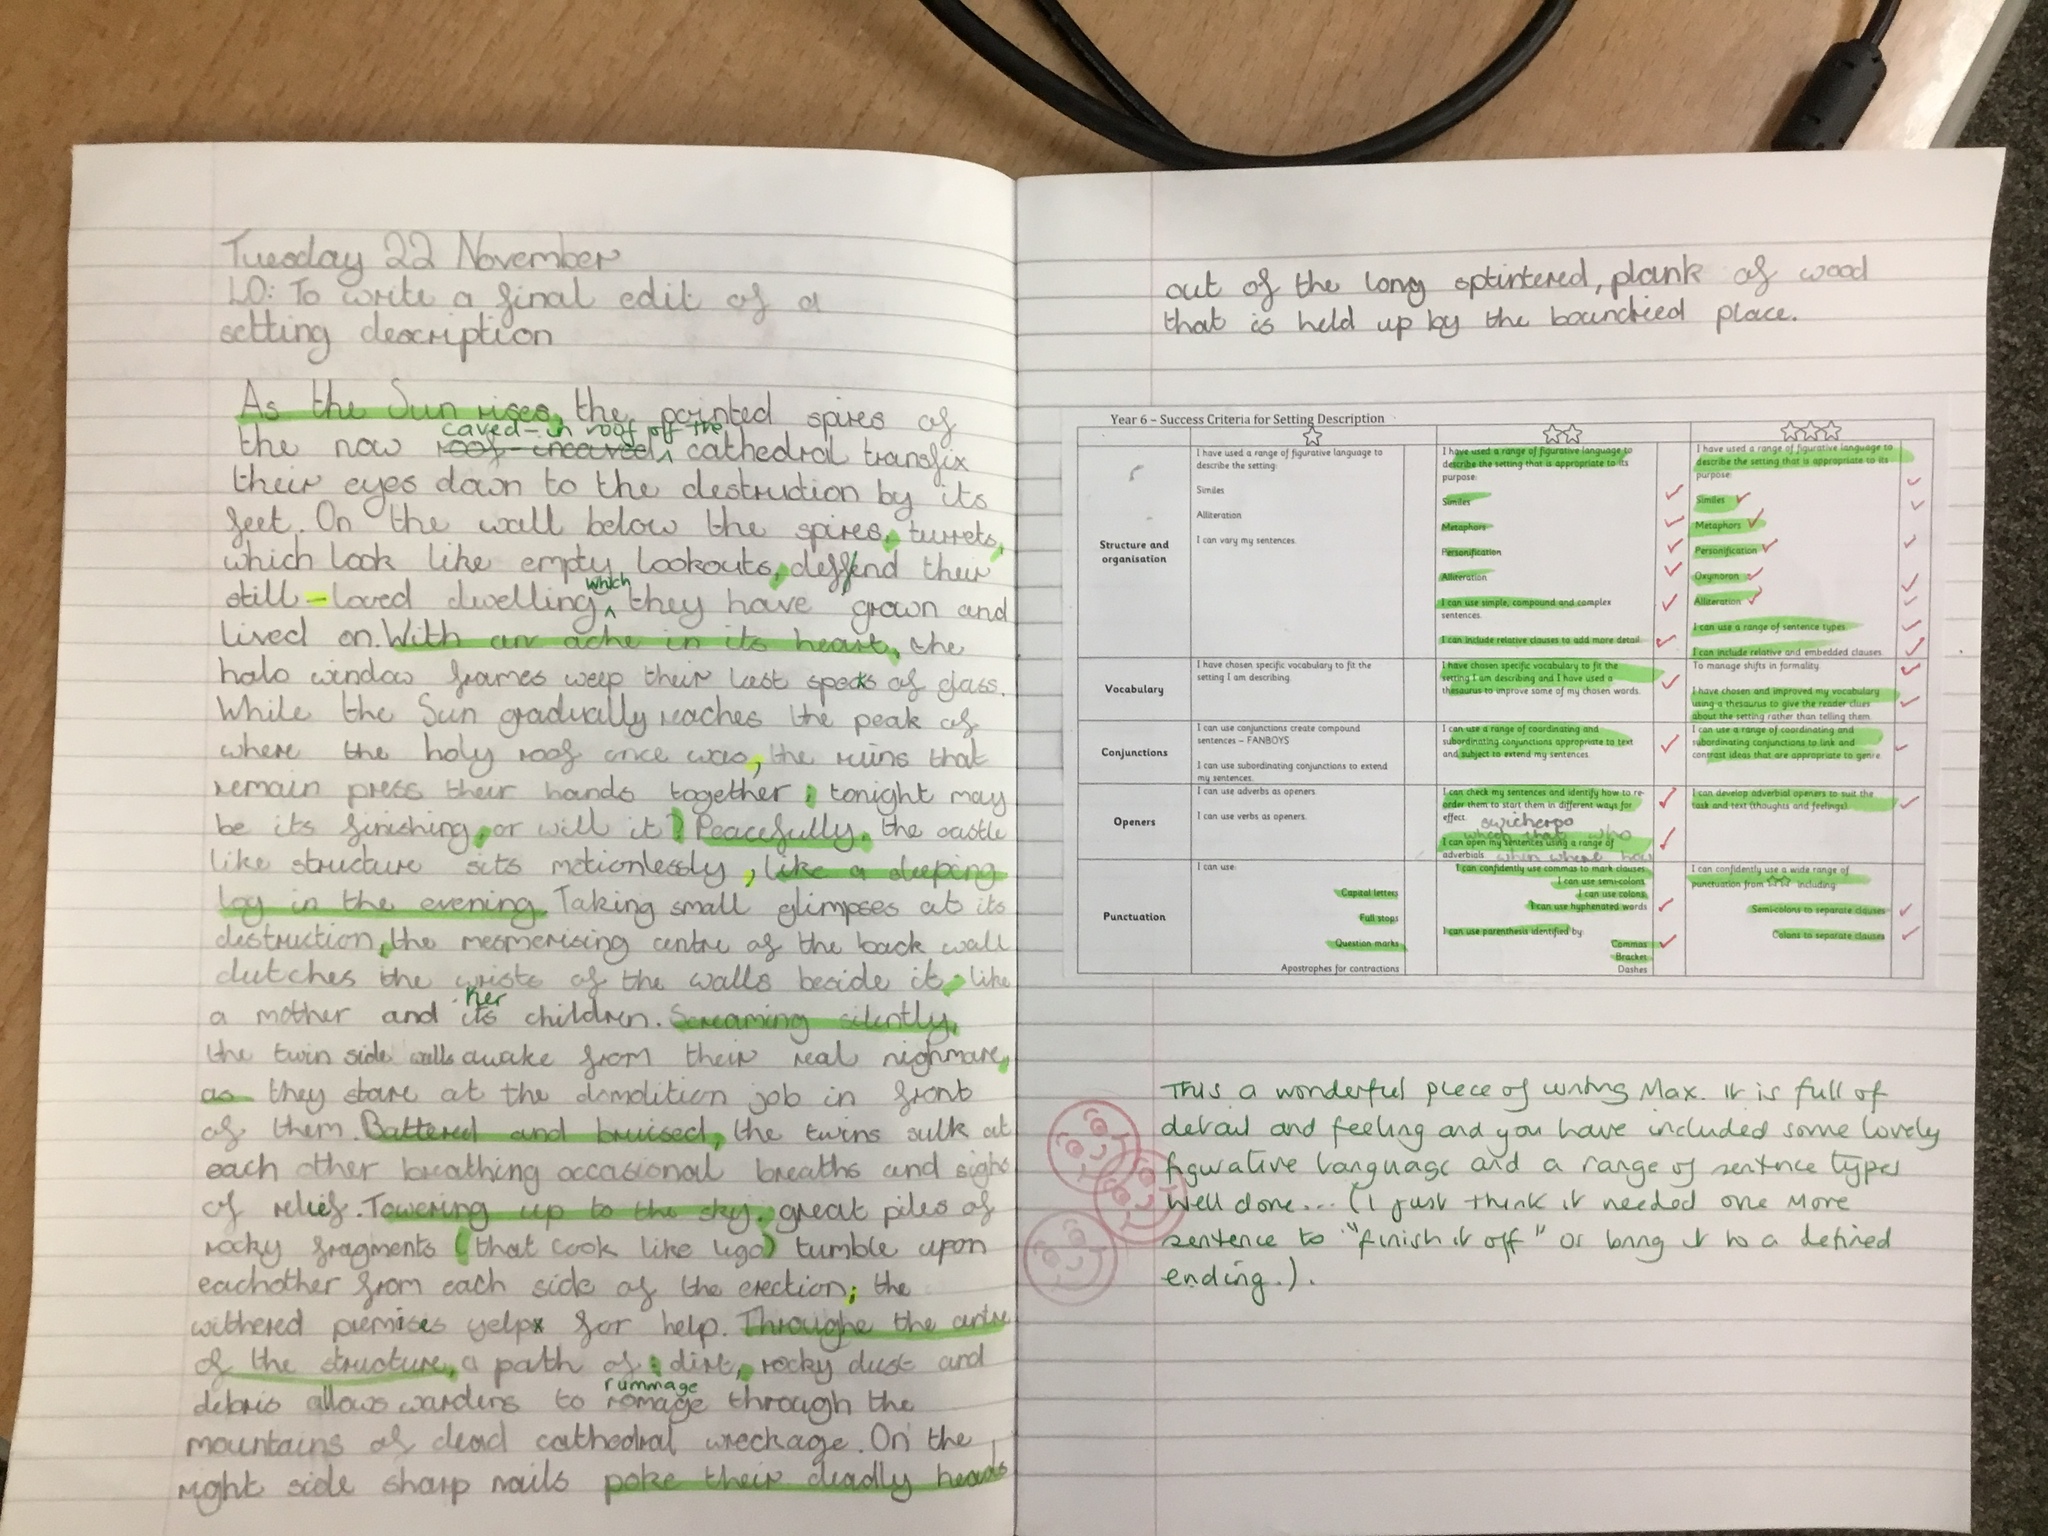 Tuesday 22 November
LO: To write a final edit of a
setting description
As the Sun rises, the pointed spires of
caved-in roof off the
the now cathedral transfix
their eyes down to the destruction by its
feet. On the wall below the spires, turrets,
which look like empty lookouts, deffend their
which
still-loved dwelling they have grown and
lived on. With an ache in its heart, the
halo window frames weep their last specks of glass.
While the Sun gradually reaches the peak of
where the holy roof once was, the ruins that
remain press their hands together; tonight may
be its finishing, or will it? Peacefully, the castle
like structure sits motionlessly, like a sleeping
log in the evening. Taking small glimpses at its
destruction, the mesmerising centre of the back wall
clutches the wrists of the walls beside it, like
her
a mother and its children. Screaming silently,
the twin side walls awake from their real nighmare,
as they stare at the demolition job in front
of them. Battered and bruised, the twins sulk at
each other breathing occasional breaths and sighs
of relief. Towering up to the sky, great piles of
rocky fragments (that look like lego) tumble upon
eachother from each side of the erection; the
withered premises yelp for help. Throughe the centre
of the structure, a path of: dirt, rocky dust and
rummage
debris allows wardens to romage through the
mountains of dead cathedral wreckage. On the
right side sharp nails poke their deadly heads
out of the long splintered, plank of wood
that is held up by the boundried place.
Year 6 – Success Criteria for Setting Description
Structure and
organisation
I have used a range of figurative language to
describe the setting:
Similes
Alliteration
I can vary my sentences.
I have used a range of figurative language to
describe the setting that is appropriate to its
purpose:
Similes
Metaphors
Personification
Alliteration
I can use simple, compound and complex
sentences.
I can include relative clauses to add more detail.
I have used a range of figurative language to
describe the setting that is appropriate to its
purpose:
Similes
Metaphors
Personification
Oxymoron
Alliteration
I can use a range of sentence types
I can include relative and embedded clauses.
To manage shifts in formality
Vocabulary
I have chosen specific vocabulary to fit the
setting I am describing.
I have chosen specific vocabulary to fit the
setting I am describing and I have used a
thesaurus to improve some of my chosen words.
I have chosen and improved my vocabulary
using a thesaurus to give the reader clues
about the setting rather than telling them.
Conjunctions
I can use conjunctions create compound
sentences – FANBOYS
I can use subordinating conjunctions to extend
my sentences.
I can use a range of coordinating and
subordinating conjunctions appropriate to text
and subject to extend my sentences.
I can use a range of coordinating and
subordinating conjunctions to link and
contrast ideas that are appropriate to genre
Openers
I can use adverbs as openers.
I can use verbs as openers.
I can check my sentences and identify how to re-
order them to start them in different ways for
effect.
I can open my sentences using a range of
adverbials. when where how
I can develop adverbial openers to suit the
task and text (thoughts and feelings)
Punctuation
I can use:
Capital letters
Full stops
Question marks
Apostrophes for contractions
I can confidently use commas to mark clauses
I can use semi-colons
I can use colons
I can use hyphenated words
I can use parenthesis identified by:
Commas
Bracket
Dashes
I can confidently use a wide range of
punctuation from including
Semi-colons to separate clauses
Colons to separate clauses
This a wonderful piece of writing Max. It is full of
detail and feeling and you have included some lovely
figurative language and a range of sentence types
Well done... (I just think it needed one more
sentence to "finish it off" or bring it to a defined
ending.).